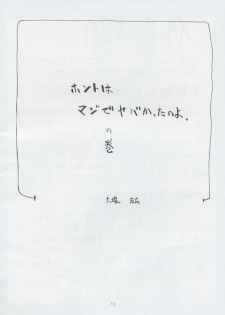 ホントは
マジでヤバかったのよ。
の
巻